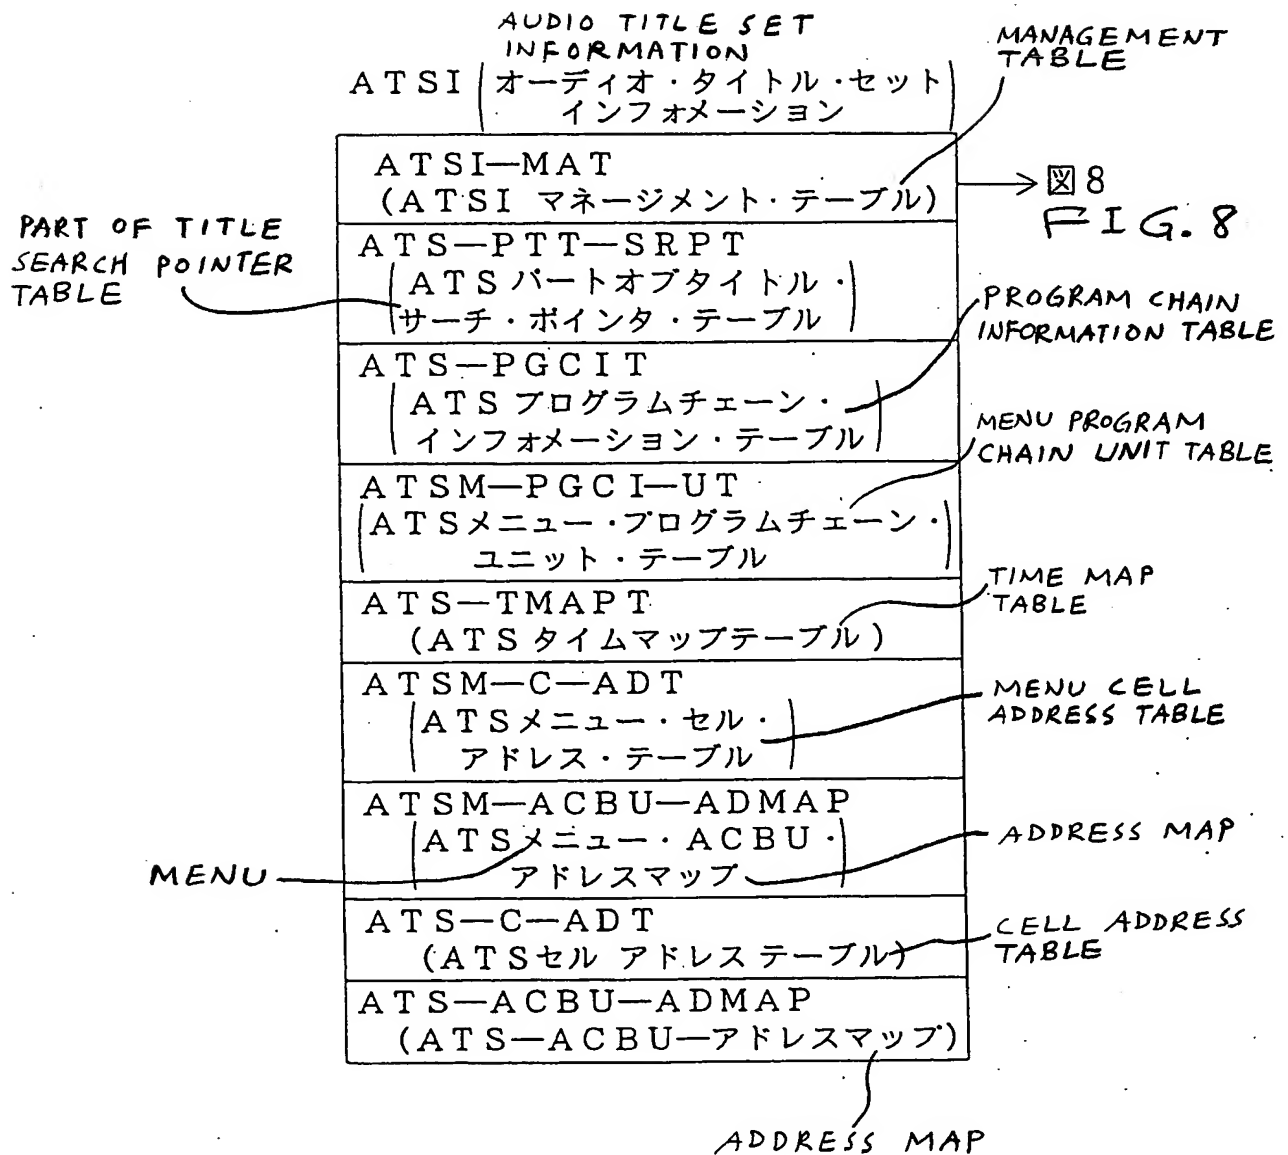 AUDIO TITLE SET
INFORMATION
MANAGEMENT
TABLE
ATSI(オーディオ・タイトル・セット
インフォメーション)
ATSI—MAT
(ATSI マネージメント・テーブル)
図8
FIG.8
PART OF TITLE
SEARCH POINTER
TABLE
ATS—PTT—SRPT
(ATSパートオブタイトル・
サーチ・ポインタ・テーブル)
PROGRAM CHAIN
INFORMATION TABLE
ATS—PGCIT
(ATSプログラムチェーン・
インフォメーション・テーブル)
MENU PROGRAM
CHAIN UNIT TABLE
ATSM—PGCI—UT
(ATSメニュー・プログラムチェーン・
ユニット・テーブル)
TIME MAP
TABLE
ATS—TMAPT
(ATSタイムマップテーブル)
MENU CELL
ADDRESS TABLE
ATSM—C—ADT
(ATSメニュー・セル・
アドレス・テーブル)
ATSM—ACBU—ADMAP
(ATSメニュー・ACBU・
アドレスマップ)
ADDRESS MAP
MENU
ATS—C—ADT
(ATSセル アドレス テーブル)
CELL ADDRESS
TABLE
ATS—ACBU—ADMAP
(ATS—ACBU—アドレスマップ)
ADDRESS MAP